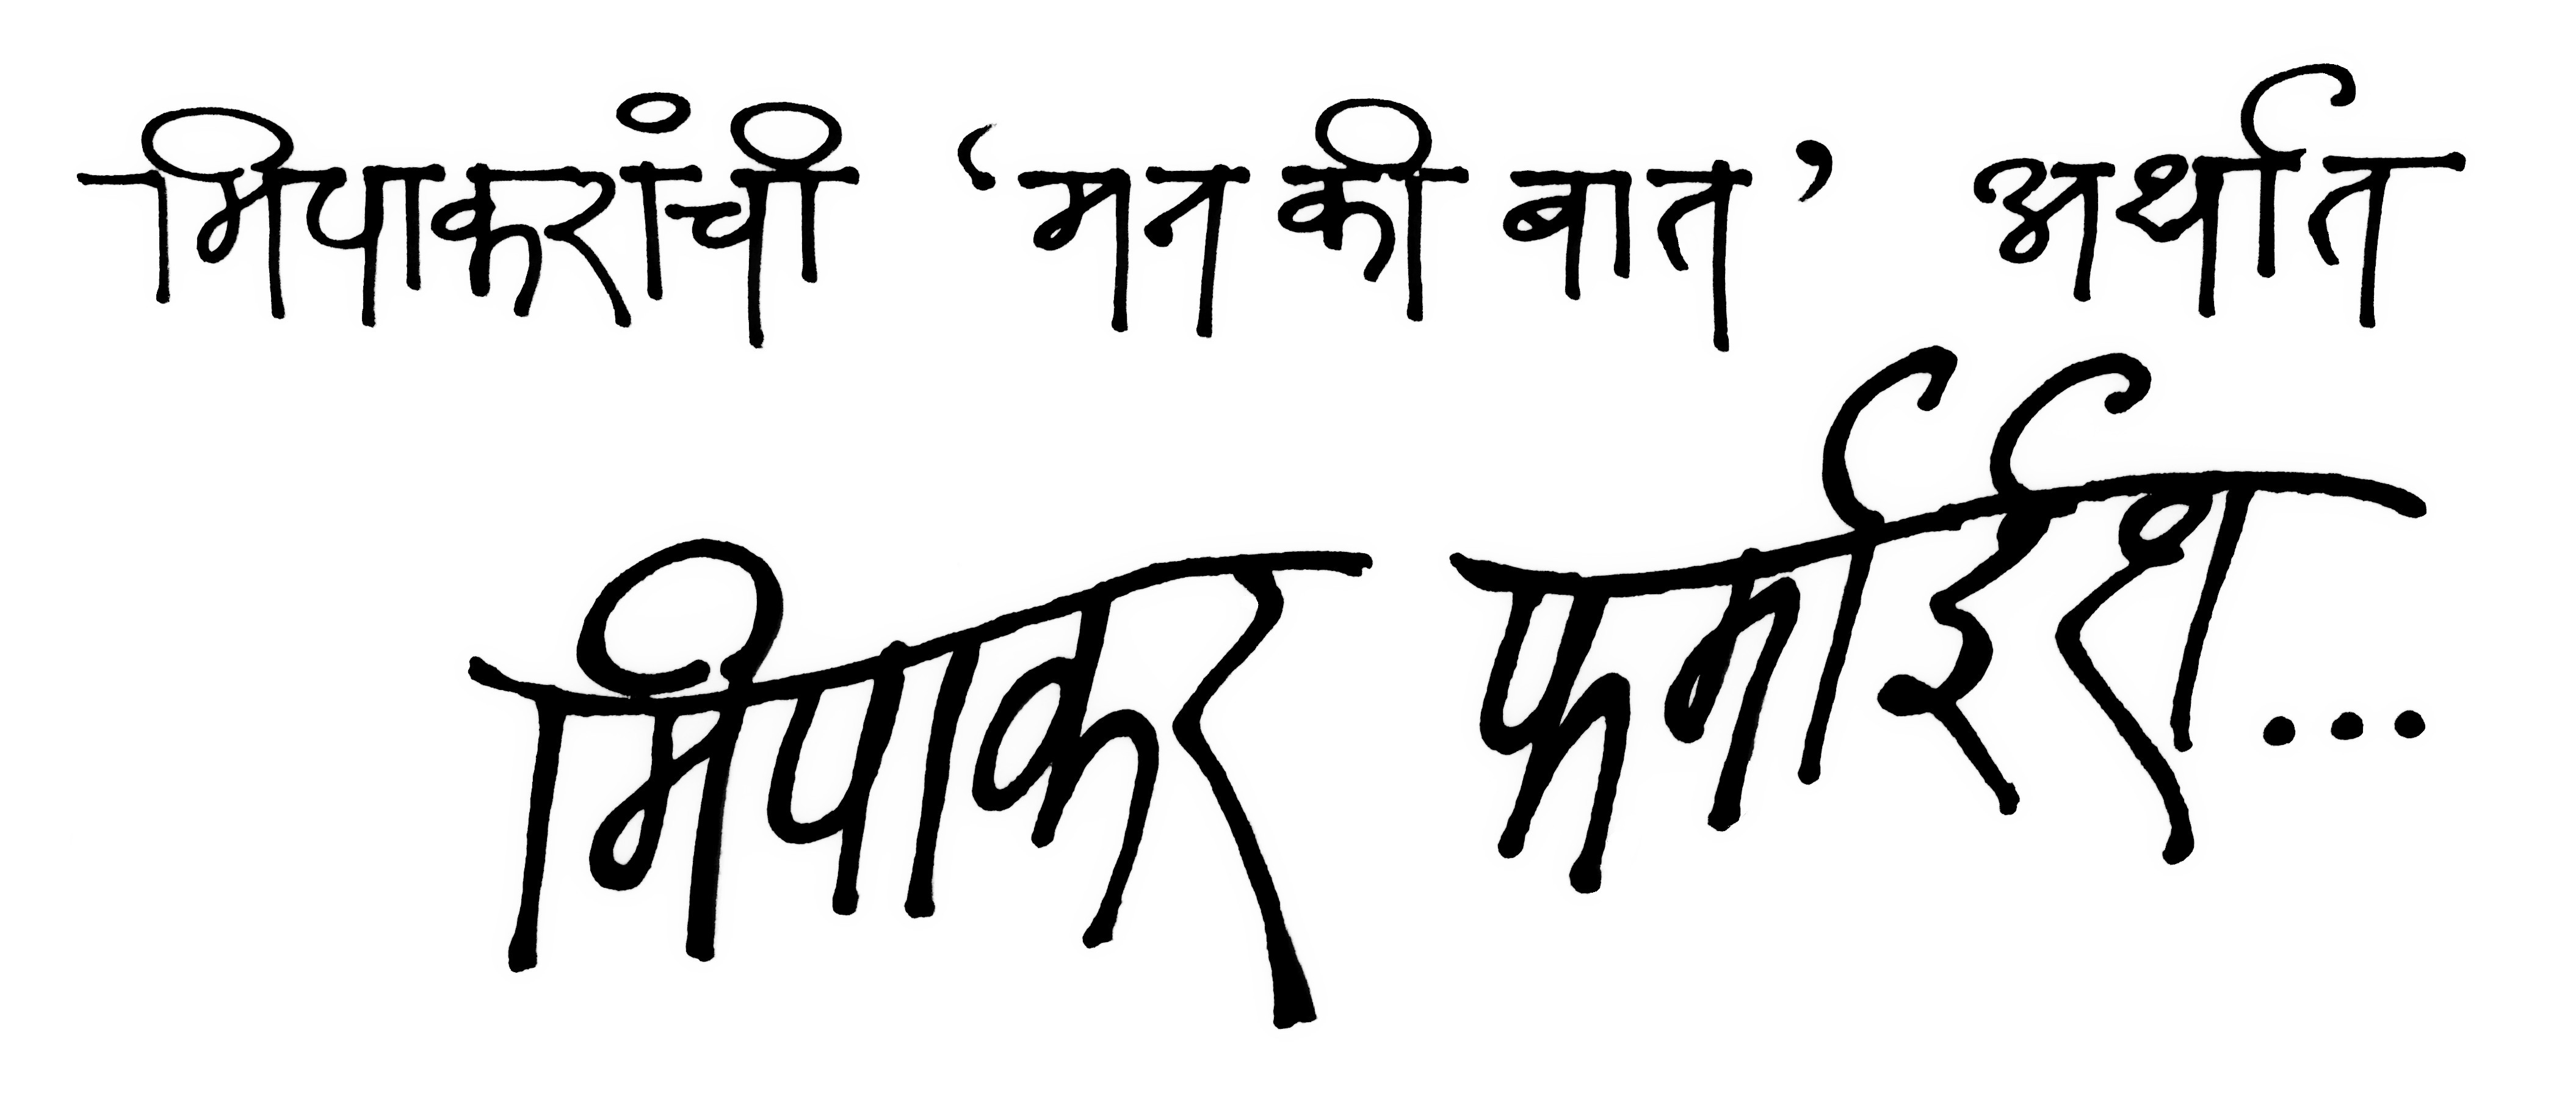 मिपाकरांची ‘मन की बात’ अर्थात
मिपाकर फर्माईश...